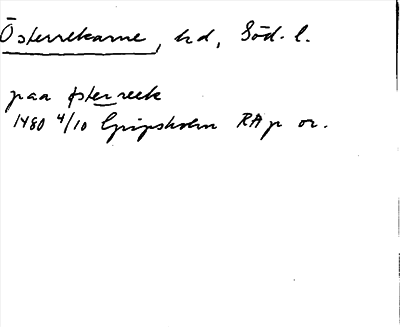 Österrekarne, hd, Söd. l.
paa østerreek
1480 4/10 Gripsholm RA p or.